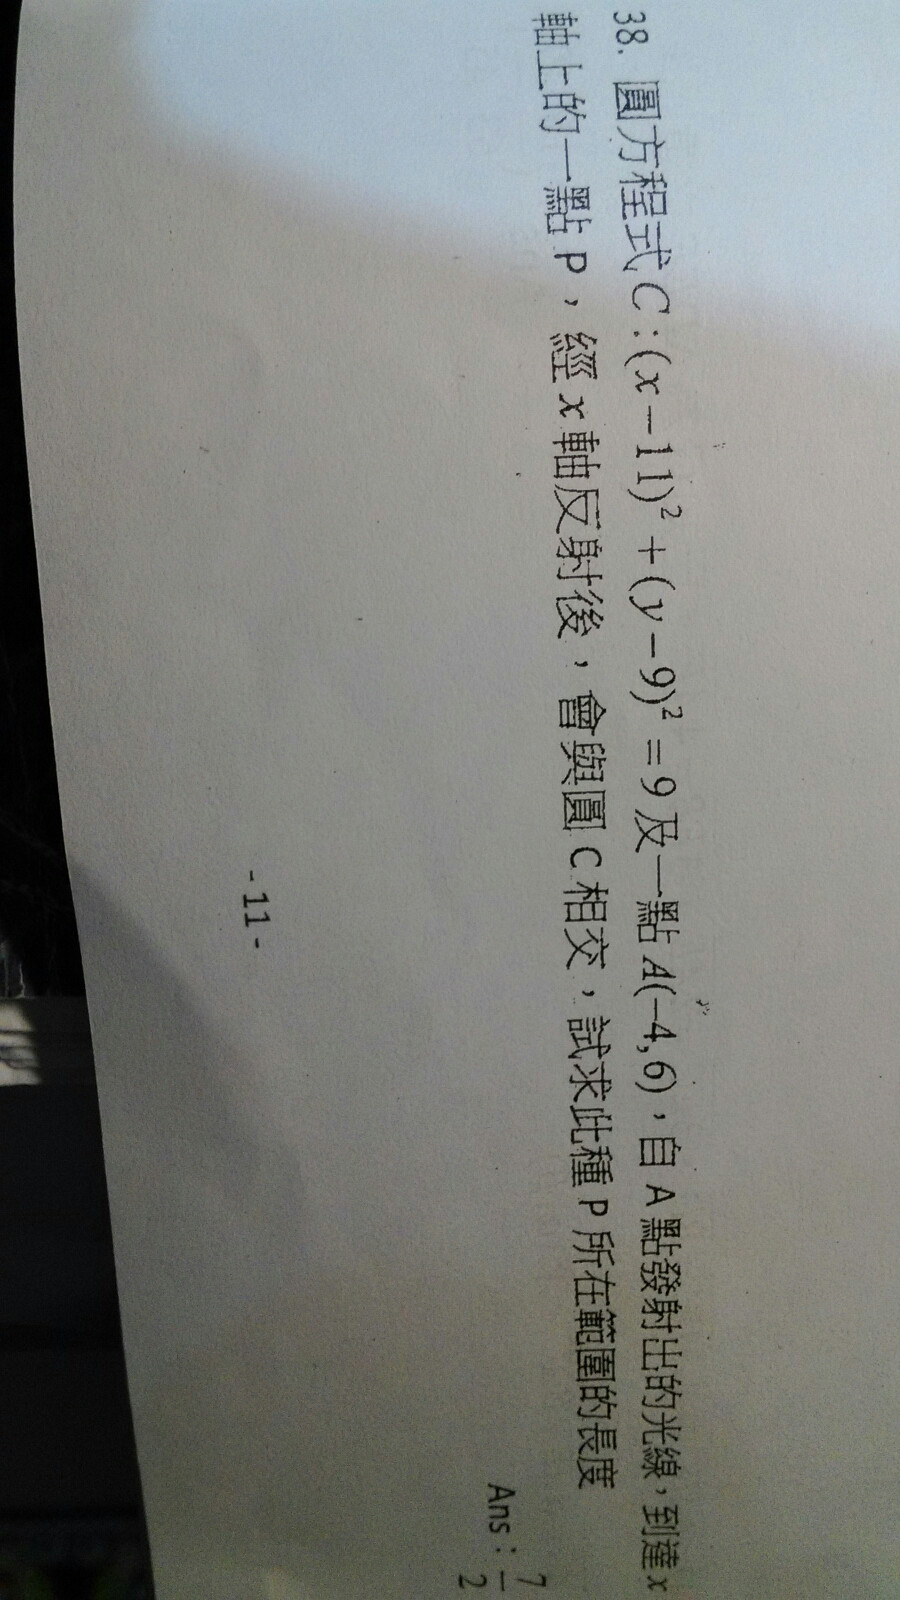 38. 圓方程式 C : (x − 11)² + (y − 9)² = 9 及一點 A(−4, 6)，自 A 點發射出的光線，到達 x
軸上的一點 P，經 x 軸反射後，會與圓 C 相交，試求此種 P 所在範圍的長度
Ans : 7/2
- 11 -